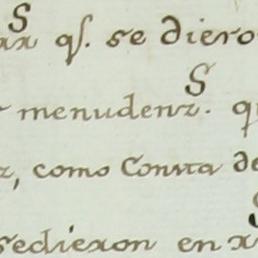 q.^s se diero
menudenz.^s q
como Consta de
sedieron en